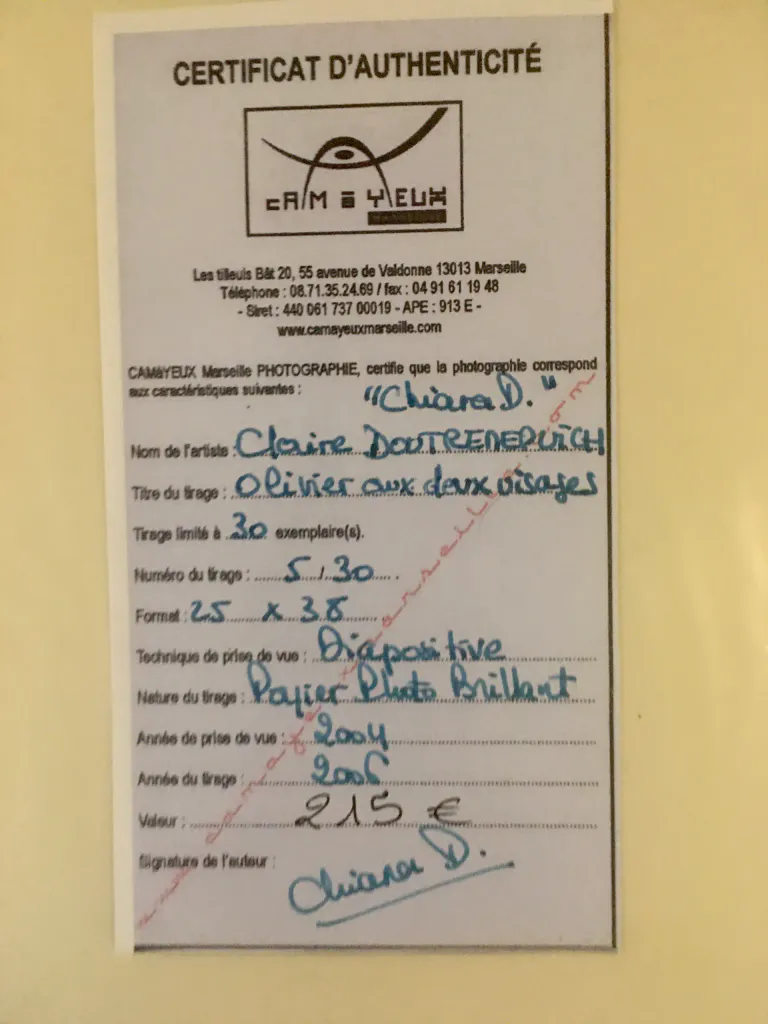 CERTIFICAT D'AUTHENTICITÉ
CAMaYEUX
Les tilleuls Bât 20, 55 avenue de Valdonne 13013 Marseille
Téléphone : 08.71.35.24.69 / fax : 04 91 61 19 48
- Siret : 440 061 737 00019 - APE : 913 E -
www.camayeuxmarseille.com
CAMaYEUX Marseille PHOTOGRAPHIE, certifie que la photographie correspond
aux caractéristiques suivantes :
"Chiara D."
Nom de l'artiste : Claire
Titre du tirage : Olivier aux deux visages
Tirage limité à 30 exemplaire(s).
Numéro du tirage : 5 / 30
Format : 25 x 38
Technique de prise de vue : Diapositive
Nature du tirage : Papier Photo Brillant
Année de prise de vue : 2004
Année du tirage : 2006
Valeur : 215 €
Signature de l'auteur :
Chiara D.